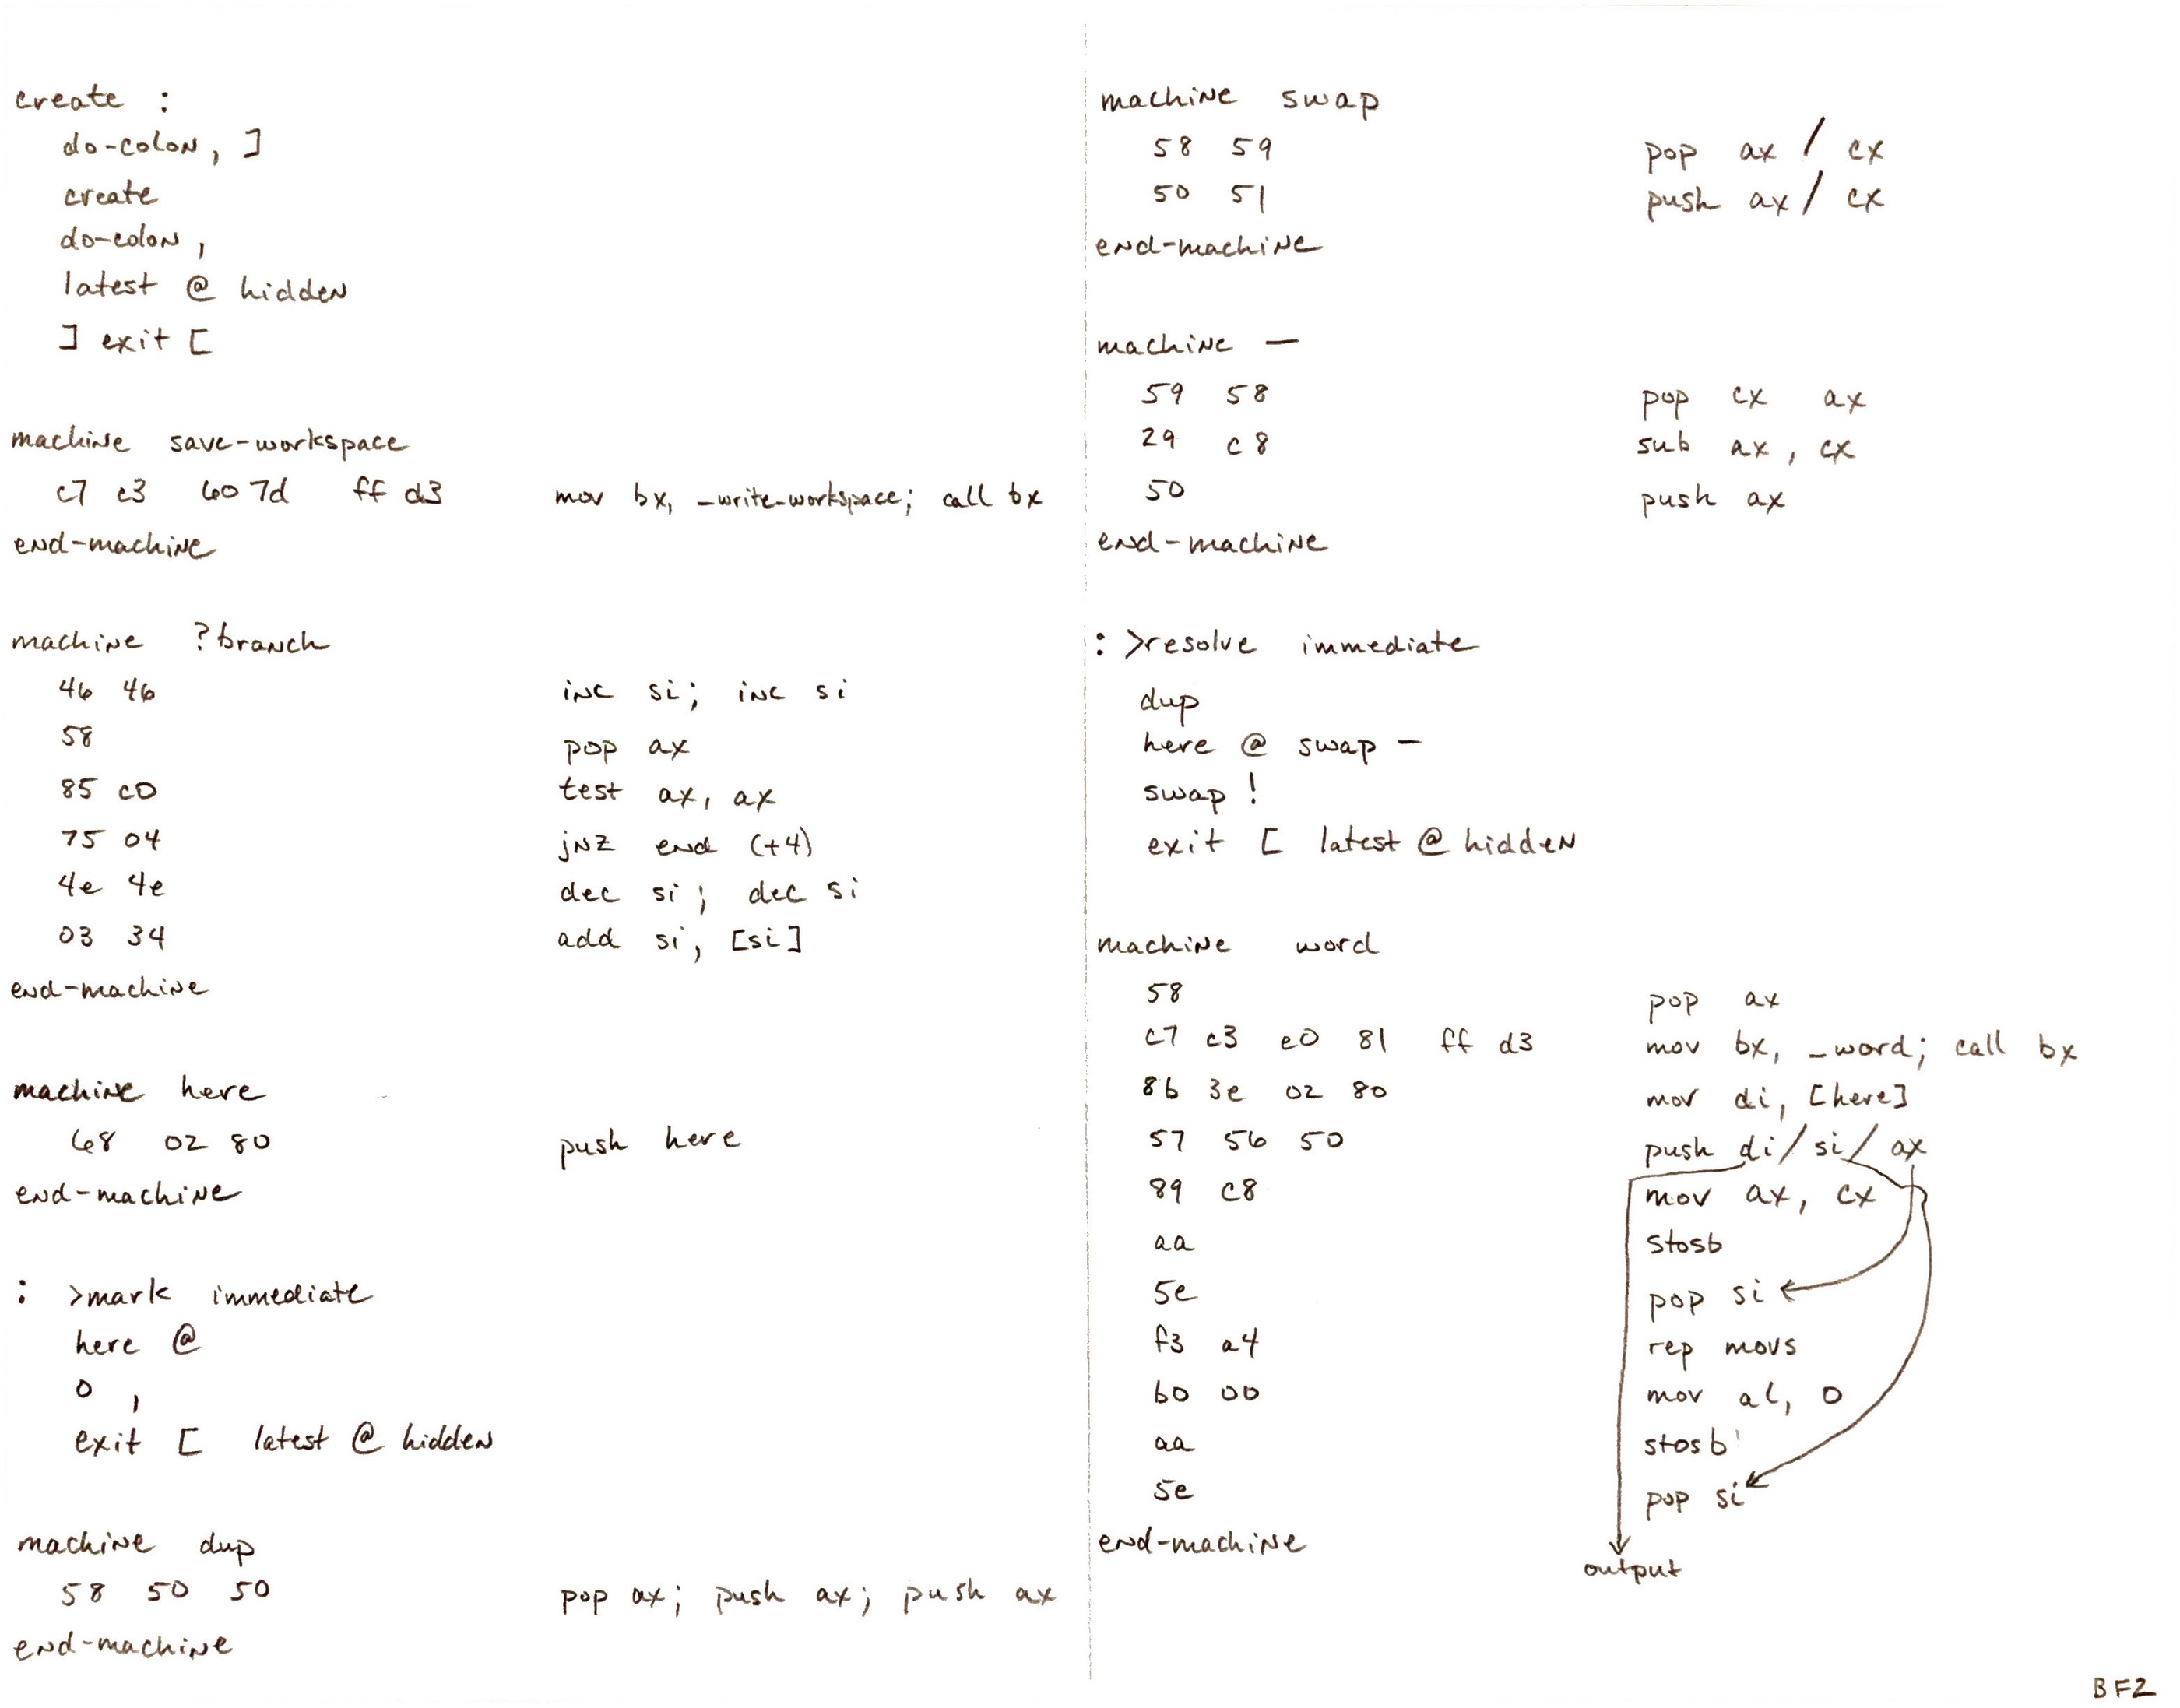 create :
do-colon , ]
create
do-colon ,
latest @ hidden
] exit [
machine save-workspace
c7 c3 60 7d ff d3 mov bx, _write-workspace; call bx
end-machine
machine ?branch
46 46 inc si; inc si
58 pop ax
85 c0 test ax, ax
75 04 jnz end (+4)
4e 4e dec si; dec si
03 34 add si, [si]
end-machine
machine here
68 02 80 push here
end-machine
: >mark immediate
here @
0 ,
exit [ latest @ hidden
machine dup
58 50 50 pop ax; push ax; push ax
end-machine
machine swap
58 59 pop ax / cx
50 51 push ax / cx
end-machine
machine -
59 58 pop cx ax
29 c8 sub ax, cx
50 push ax
end-machine
: >resolve immediate
dup
here @ swap -
swap !
exit [ latest @ hidden
machine word
58 pop ax
c7 c3 e0 81 ff d3 mov bx, _word; call bx
8b 3e 02 80 mov di, [here]
57 56 50 push di / si / ax
89 c8 mov ax, cx
aa stosb
5e pop si
f3 a4 rep movs
b0 00 mov al, 0
aa stosb
5e pop si
end-machine
output
BF2